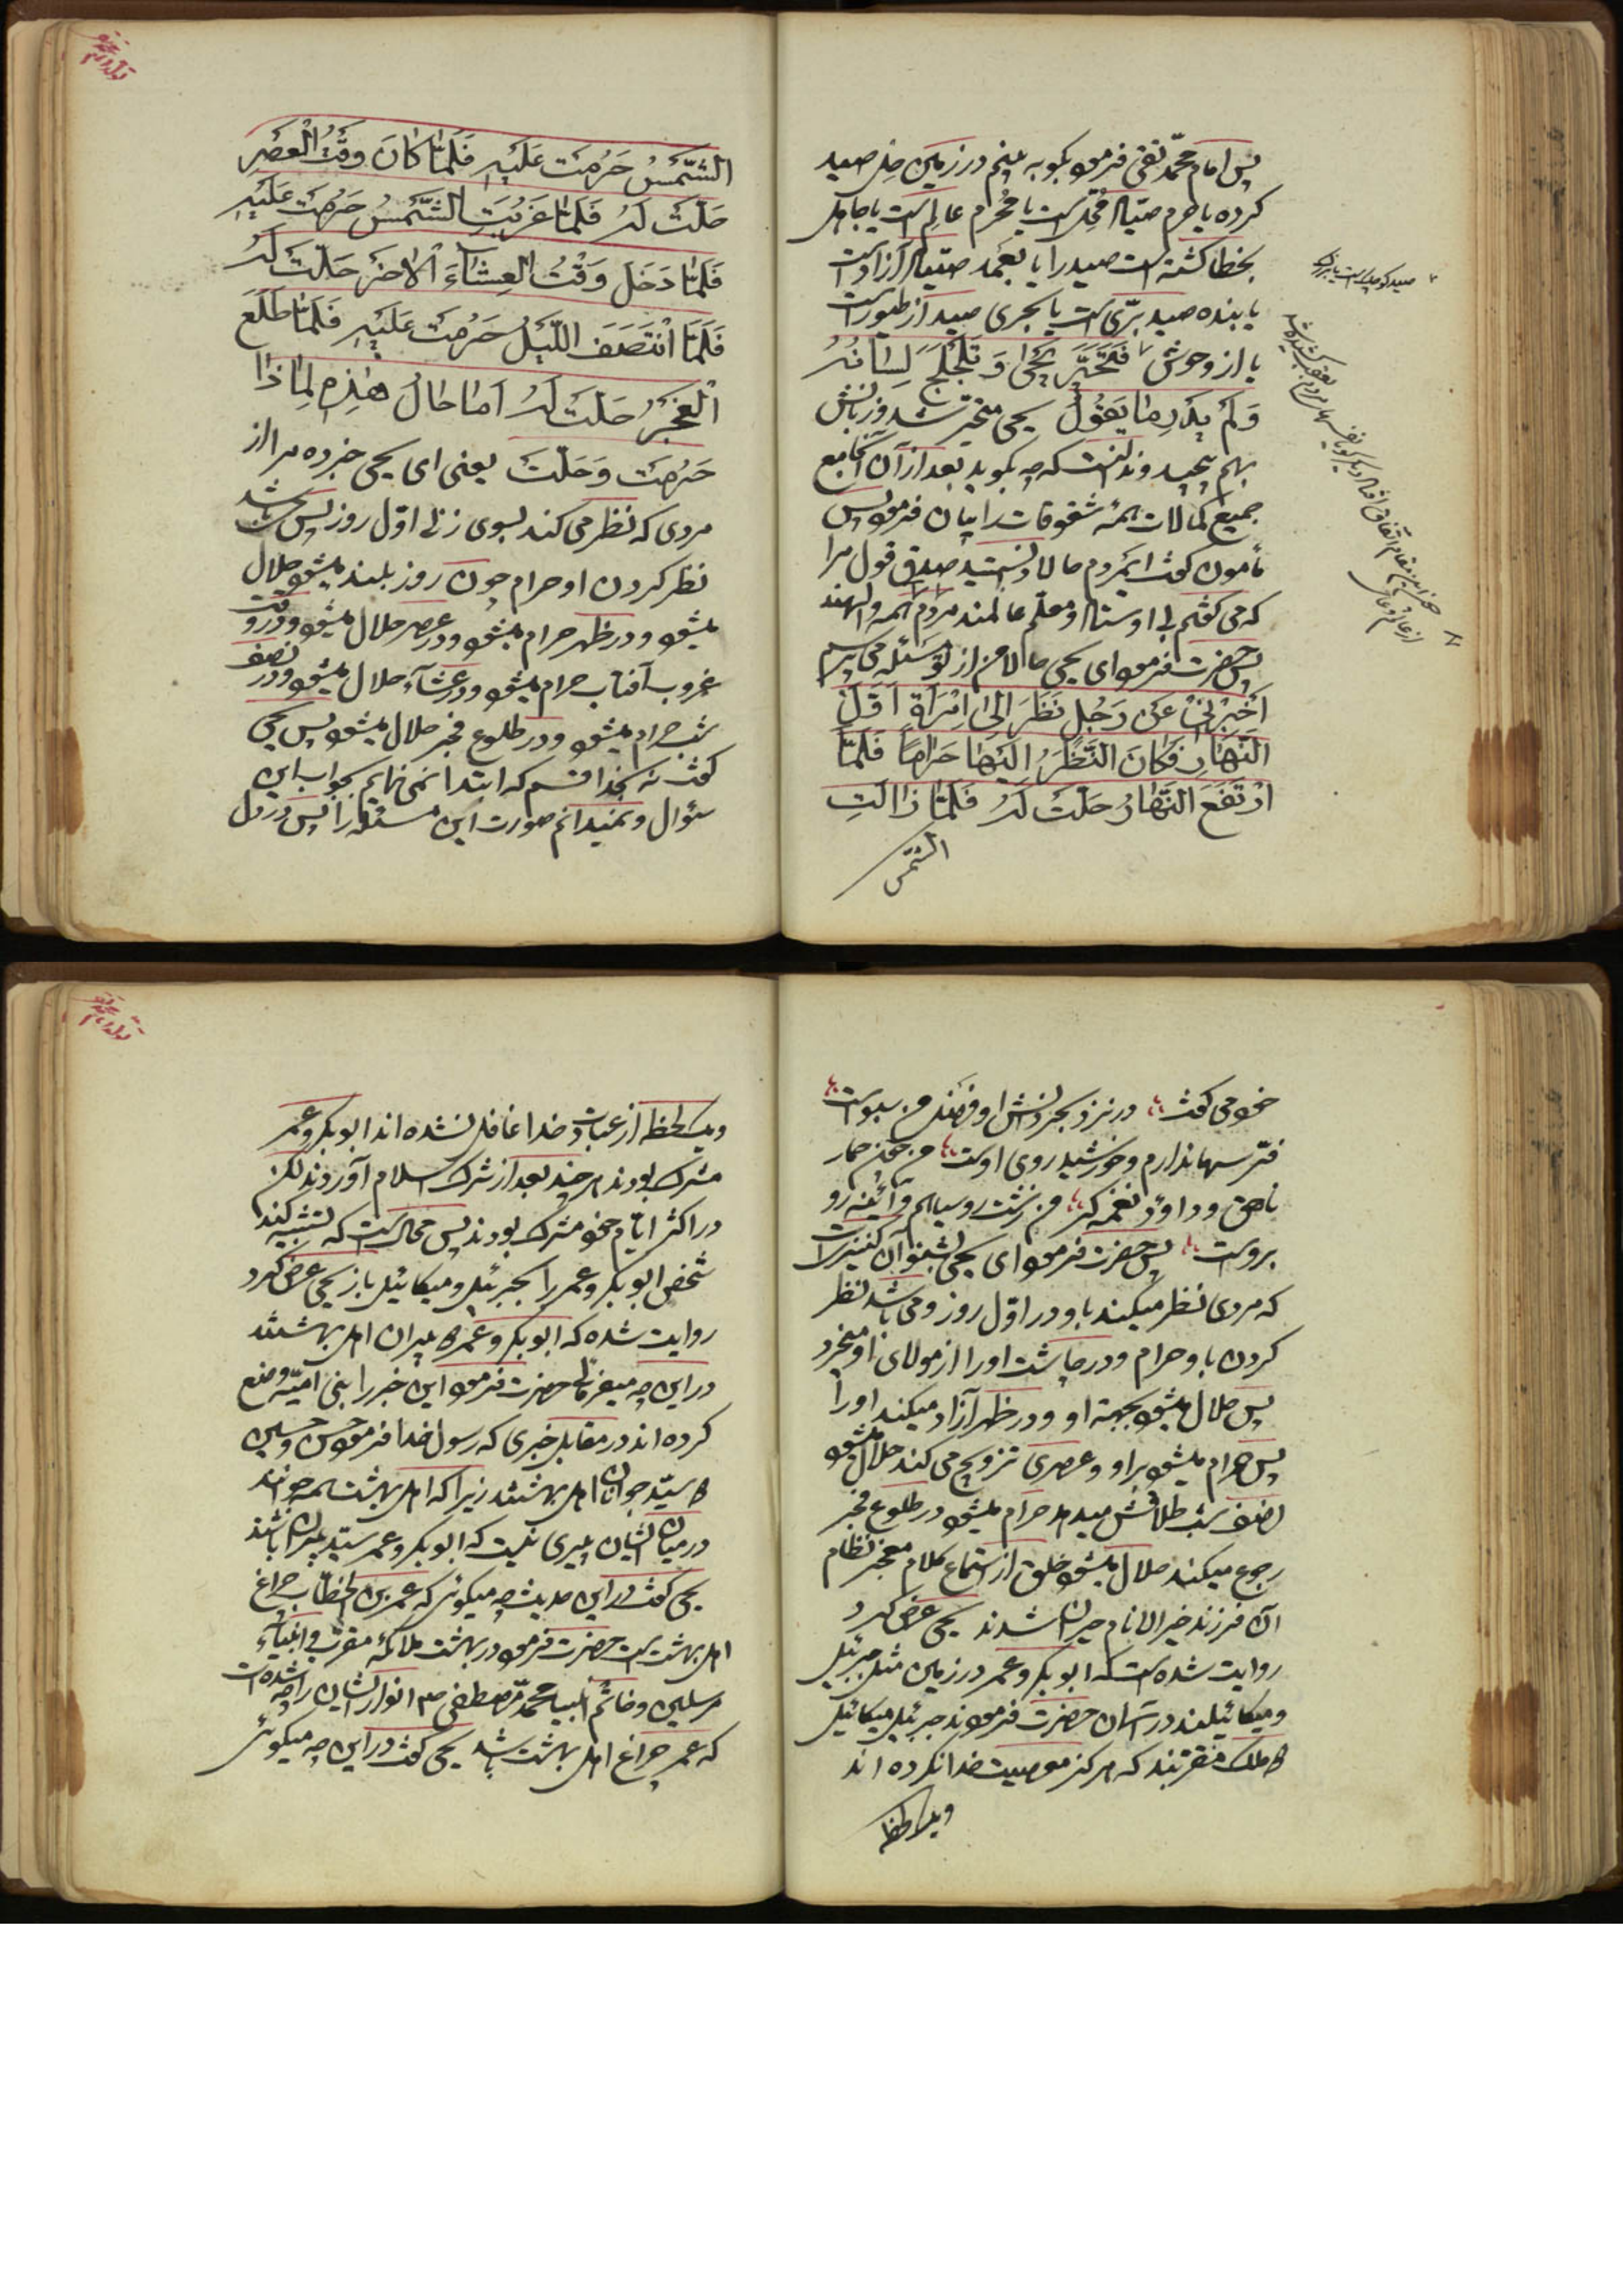 پس امام محمد تقی فرمود بگو به بینم در زمین حل صید
کرده یا حرم صیاد محل است یا محرم عالم است یا جاهل
بخطا کشته است صید را یا بعمد صیاد آزاد است
یا بنده صید بری است یا بحری صید از طیور است
یا از وحوش فَتَحَيَّرَ يَحْيٰی وَ تَلَجْلَجَ لِسَانُهُ
وَ لَمْ يَدْرِ مٰا يَقُوْلُ یحیی متحیر شد و زبانش
بهم پیچید و ندانست که چه بگوید بعد از آن آنجامع
جمیع کمالات همهٔ شقوقات را بیان فرمود پس
مأمون گفت ایمردم حالا دانستید صدق قول مرا
که می گفتم بی اوستاد و معلم عالمند مردم همه والهند
پس حضرت فرمود ای یحیی حالا من از تو مسئله می پرسم
اَخْبِرْنِیْ عَنْ رَجُلٍ نَظَرَ اِلٰی اِمْرَأَةٍ اَوَّلَ
النَّهٰارِ فَكٰانَ النَّظَرُ اِلَيْهٰا حَرٰامًا فَلَمّٰا
ارْتَفَعَ النَّهٰارُ حَلَّتْ لَهُ فَلَمّٰا زٰالَتِ
الشمس
صید کوچک است یا بزرگ
الشَّمْسُ حَرُمَتْ عَلَيْهِ فَلَمّٰا كٰانَ وَقْتُ الْعَصْرِ
حَلَّتْ لَهُ فَلَمّٰا غَرَبَتِ الشَّمْسُ حَرُمَتْ عَلَيْهِ
فَلَمّٰا دَخَلَ وَقْتُ الْعِشٰاءَ الْاٰخَرِ حَلَّتْ لَهُ
فَلَمَّا انْتَصَفَ اللَّيْلُ حَرُمَتْ عَلَيْهِ فَلَمّٰا طَلَعَ
الْفَجْرُ حَلَّتْ لَهُ اَمٰا حٰالُ هٰذِهِ لِمٰا ذٰا
حَرُمَتْ وَ حَلَّتْ یعنی ای یحیی خبر ده مرا از
مردی که نظر می کند بسوی زنی اول روز پس باشد
نظر کردن او حرام چون روز بلند میشود حلال
میشود و در ظهر حرام میشود و در عصر حلال میشود و در وقت
غروب آفتاب حرام میشود و در عشآء حلال میشود و در نصف
شب حرام میشود و در طلوع فجر حلال میشود پس یحیی
گفت نه بخدا قسم که ابتدا نمی نمایم بجواب این
سئوال و نمیدانم صورت این مسئله را پس در دل
خود می گفت در نزد بحر دانش او من سبو است
من چون حمار
ناهق و داود نغمه گر من زشت رو سیاهم و آئینه رو
بروست پس حضرت فرمود ای یحیی بشنو آن کنیز است
که مردی نظر میکند باو در اول روز و می باشد نظر
کردن باو حرام و در چاشت او را از مولای او میخرد
پس حلال میشود بجهة او و در ظهر آزاد میکند او را
پس حرام میشود بر او و عصری تزویج می کند حلال میشود
نصف شب طلاقش میدهد حرام میشود در طلوع فجر
رجوع میکند حلال میشود خلق از استماع کلام معجز نظام
آن فرزند خیر الانام حیران شدند یحیی عرض کرد
روایت شده است که ابو بکر و عمر در زمین مثل جبرئیل
و میکائیلند در آسمان حضرت فرمودند جبرئیل میکائیل
دو ملک مقربند که هرگز معصیت خدا نکرده اند
و یک لحظه
و یک لحظه از عبادت خدا غافل نشده اند ابو بکر و عمر
مشرک بودند هر چند بعد از شرک اسلام آوردند لکن
در اکثر ایام خود مشرک بودند پس محال است که تشبیه کند
شخص ابو بکر و عمر را بجبرئیل و میکائیل باز یحیی عرض کرد
روایت شده که ابو بکر و عمر دو پیران اهل بهشتند
در این چه میفرمائی حضرت فرمود این خبر را بنی امیه وضع
کرده اند در مقابل خبری که رسول خدا فرمود حسن و حسین
دو سید جوانان اهل بهشتند زیرا که اهل بهشت همه جوانند
در میان ایشان پیری نیست که ابو بکر و عمر سید پیران باشند
یحیی گفت در این حدیث چه میکوئی که عمر بن الخطاب چراغ
اهل بهشت است حضرت فرمود در بهشت ملائکهٔ مقرب و انبیآء
مرسلین و خاتم انبیا محمد مصطفی ص انوار ایشان را چه شده است
که عمر چراغ اهل بهشت باشد یحیی گفت در این چه میکوئی